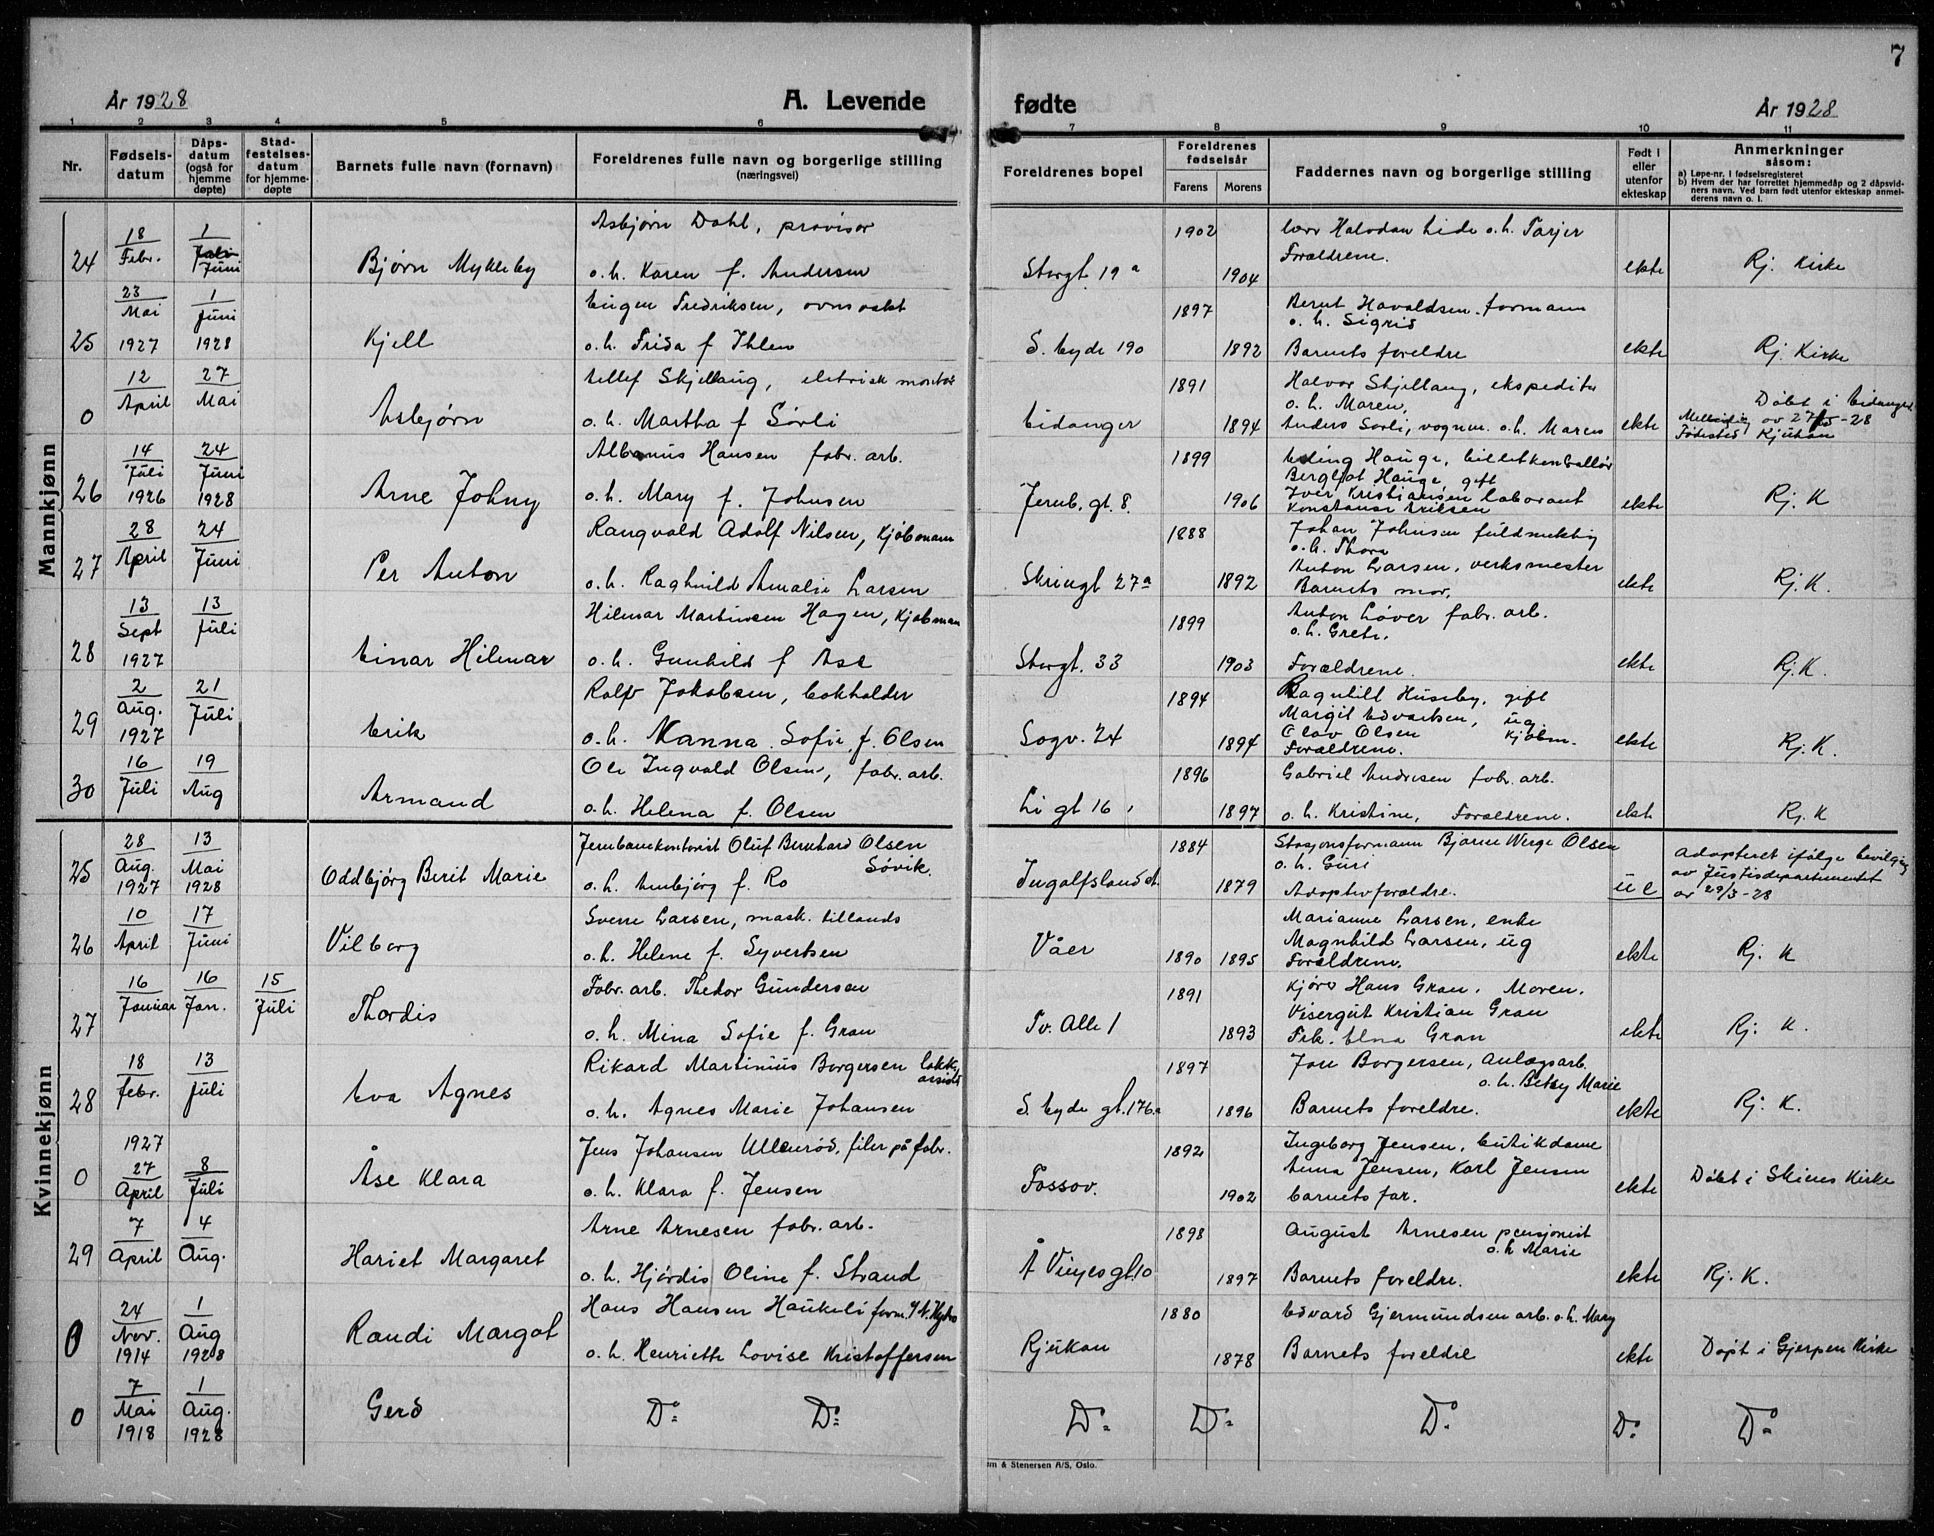 7
År 1928 A. Levende fødte År 1928
1 2 3 4 5 6 7 8 9 10 11
Nr.
Fødselsdatum
Dåpsdatum (også for hjemmedøpte)
Stadfestelsesdatum for hjemmedøpte
Barnets fulle navn (fornavn)
Foreldrenes fulle navn og borgerlige stilling (næringsvei)
Foreldrenes bopel
Foreldrenes fødselsår
Farens Morens
Faddernes navn og borgerlige stilling
Født i eller utenfor ekteskap
Anmerkninger såsom:
a) Løpe-nr. i fødselsregisteret
b) Hvem der har forrettet hjemmedåp og 2 dåpsvidners navn. Ved barn født utenfor ekteskap anmelderens navn o. l.
Mannkjønn
24 18/Febr. 1/Juni Bjørn Mykleby Asbjørn Dahl, provisor
o. h. Karen f. Andersen Storgt. 19a 1902 1904 lærer Halvdan Lide o. h. Tarjer
Forældrene. ekte Rj. Kirke
25 23/Mai 1927 1/Juni 1928 Kjell Eugen Fredriksen, ovnsvakt
o. h. Frida f Ihlen S. byde 190 1897 1892 Bernt Havaldsen formann
o. h. Sigrid
Barnets foreldre ekte Rj. Kirke
0 12/April 27/Mai Asbjørn Tellef Skjellaug, elektrisk montør
o. h. Martha f Sørli Eidanger 1891 1894 Halvor Skjellaug, ekspeditør
o. h. Maren,
Anders Sørli, vognm. o. h. Maren ekte Døbt i Eidanger
av 27/5-28
Fødested Rjukan
26 14/Juli 1926 24/Juni 1928 Arne Johny Albanus Hansen fabr. arb.
o. h. Mary f. Johnsen Jernb. gt. 8. 1899 1906 Erling Hauge, billetkontrollør
Bergljot Hauge, gift
Iver Kristiansen laborant
Konstanse Eriksen ekte Rj. K
27 28/April 24/Juni Per Anton Rangvald Adolf Nilsen, Kjøbmann
o. h. Raghnild Amalie Larsen Skriugt 27a 1888 1892 Johan Johnsen fuldmektig
o. h. Thora
Anton Larsen, verksmester
Barnets mor. ekte Rj. K.
28 13/Sept 1927 13/Juli Einar Hilmar Hilmar Martinsen Hagen, Kjøbman
o. h. Gunhild f Ase Storgt. 33 1899 1903 Anton Løver fabr. arb.
o. h. Grete.
Forældrene. ekte Rj. K.
29 2/Aug. 1927 21/Juli Erik Rolf Jakobsen, bokholder
o. h. Nanna Sofie, f. Olsen Sogv. 24 1894 1894 Ragnhilt Huseby, gift
Margit Edvartsen, ug
Olav Olsen Kjøbm.
Forældrene. ekte Rj. K.
30 16/Juli 19/Aug Armand Ole Ingvald Olsen, fabr. arb.
o. h. Helena f. Olsen Li gt 16 1896 1897 Gabriel Andresen fabr. arb.
o. h. Kristine, Forældrene. ekt Rj. K
Kvinnekjønn
25 28/Aug. 1927 13/Mai 1928 Oddbjørg Berit Marie Jernbanekontorist Oluf Bernhard Olsen
Søvik.
o. h. Arnbjørg f. Ro Ingolfsland st 1884 1879 Stasjonsformann Bjarne Werge Olsen
o. h. Guri
Adoptivforældre. u e Adopteret ifølge bevilging
av Justisdepartementet
av 29/3-28
26 10/April 17/Juni Vilborg Sverre Larsen, mask. tillands
o. h. Helene f. Syvertsen Våer 1890 1895 Marianne Larsen, enke
Magnhild Larsen, ug
Forældrene. ekte Rj. K
27 16/Januar 16/Jan. 15/Juli Thordis Fabr. arb. Thedor Gundersen
o. h. Mina Sofie f. Gran Tv. Alle 1 1891 1893 Kjører Hans Gran. Moren.
Visergut Kristian Gran
Frk. Elna Gran ekte Rj. K.
28 18/febr. 13/Juli Eva Agnes Rikard Martinius Borgersen
o. h. Agnes Marie Johansen S. byde gt. 176a 1897 1896 Jon Borgersen, Anlægsarb.
o. h. Betsy Marie
Barnets foreldre. ekte Rj. K.
0 1927 27/April 8/Juli Åse Klara Jens Johansen Ullerød, filer på fabr.
o. h. Klara f. Jensen Fossov. 1892 1902 Ingeborg Jensen, butikdame
Anna Jensen, Karl Jensen
barnets far. ekte Døbt i Skiens Kirke
29 7/April 4/Aug. Hariet Margaret Arne Arnesen fabr. arb.
o. h. Hjørdis Oline f. Strand Å Vinjesgt. 10 1898 1897 August Arnesen pensjonist
o. h Marie
Barnets foreldre. ekte Rj. K.
0 24/Nov. 1914 1/Aug 1928 Randi Margot Hans Hansen Haukeli form. N. Hydro
o. h. Henriette Lovise Kristoffersen Rjukan 1880 1878 Edvard Gjermundsen arb. o. h. Mary
Barnets foreldre ekte Døpt i Gjerpen Kirke
0 7/Mai 1918 1/Aug. 1928 Gerd Do Do Do Do Do Do Do
um & Stenersen A/S, Oslo.